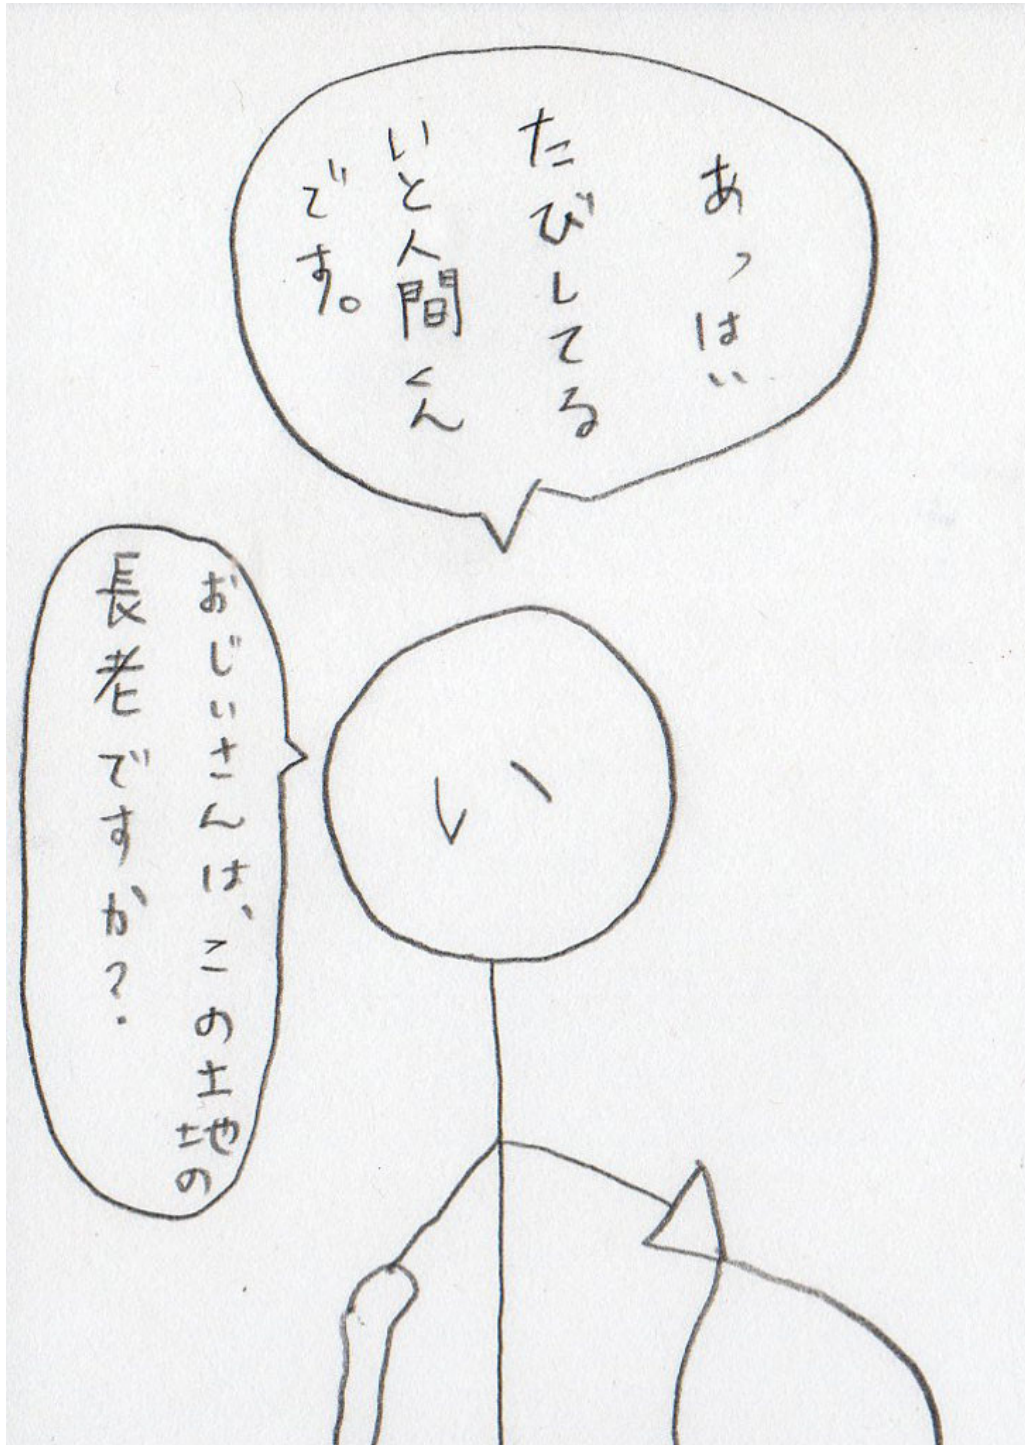 あっはい
たびしてる
いと人間くん
です。
おじいさんは、この土地の
長老ですか?
い